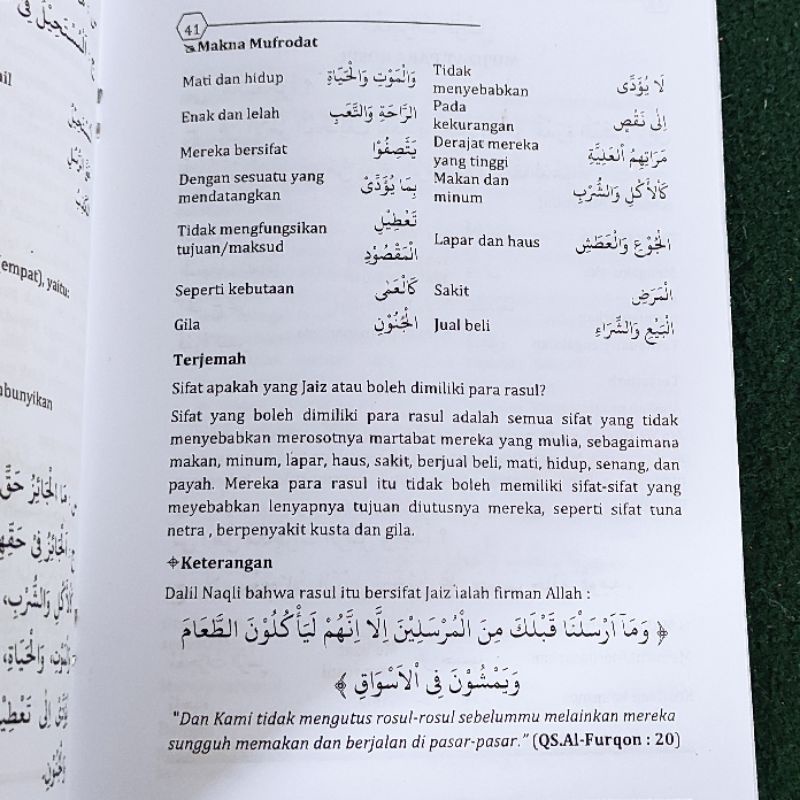 41
Makna Mufrodat
Mati dan hidup وَالْمَوْتِ وَالْحَيَاةِ Tidak menyebabkan لَا يُؤَدِّى
Enak dan lelah الرَّاحَةِ وَالتَّعَبِ Pada kekurangan اِلٰى نَقْصٍ
Mereka bersifat يَتَّصِفُوْا Derajat mereka yang tinggi مَرَاتِهِمُ الْعَلِيَّةِ
Dengan sesuatu yang mendatangkan بِمَا يُؤَدِّىْ Makan dan minum كَالْاَكْلِ وَالشُّرْبِ
Tidak mengfungsikan tujuan/maksud تَعْطِيْلِ الْمَقْصُوْدِ Lapar dan haus الْجُوْعِ وَالْعَطَشِ
Seperti kebutaan كَالْعَمٰى Sakit الْمَرَضِ
Gila الْجُنُوْنِ Jual beli الْبَيْعِ وَالشِّرَاءِ
Terjemah
Sifat apakah yang Jaiz atau boleh dimiliki para rasul?
Sifat yang boleh dimiliki para rasul adalah semua sifat yang tidak
menyebabkan merosotnya martabat mereka yang mulia, sebagaimana
makan, minum, lapar, haus, sakit, berjual beli, mati, hidup, senang, dan
payah. Mereka para rasul itu tidak boleh memiliki sifat-sifat yang
meyebabkan lenyapnya tujuan diutusnya mereka, seperti sifat tuna
netra , berpenyakit kusta dan gila.
Keterangan
Dalil Naqli bahwa rasul itu bersifat Jaiz ialah firman Allah :
﴿ وَمَآ اَرْسَلْنَا قَبْلَكَ مِنَ الْمُرْسَلِيْنَ اِلَّا اِنَّهُمْ لَيَأْكُلُوْنَ الطَّعَامَ
وَيَمْشُوْنَ فِى الْاَسْوَاقِ ﴾
"Dan Kami tidak mengutus rosul-rosul sebelummu melainkan mereka
sungguh memakan dan berjalan di pasar-pasar." (QS.Al-Furqon : 20)
(empat), yaitu: